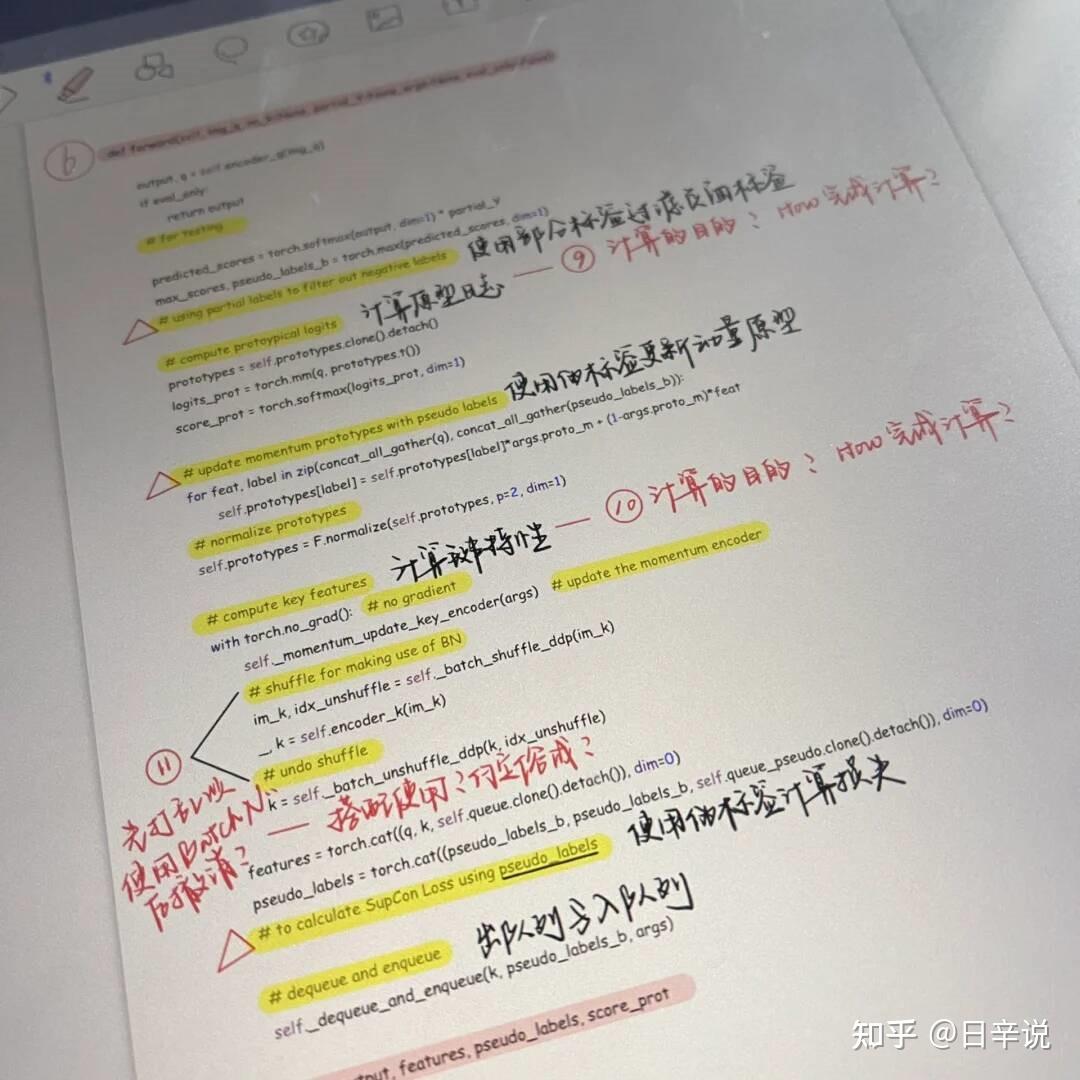 6
def forward(self, img_q, im_k=None, partial_Y=None, args=None, eval_only=False)
output, q = self.encoder_q(img_q)
if eval_only:
return output
# for testing
predicted_scores = torch.softmax(output, dim=1) * partial_Y
max_scores, pseudo_labels_b = torch.max(predicted_scores, dim=1)
# using partial labels to filter out negative labels 使用部分标签过滤负面标签
计算原型日志 — ⑨ 计算的目的? How 完成计算?
# compute protoypical logits
prototypes = self.prototypes.clone().detach()
logits_prot = torch.mm(q, prototypes.t())
score_prot = torch.softmax(logits_prot, dim=1)
# update momentum prototypes with pseudo labels 使用伪标签更新动量原型
for feat, label in zip(concat_all_gather(q), concat_all_gather(pseudo_labels_b)):
self.prototypes[label] = self.prototypes[label]*args.proto_m + (1-args.proto_m)*feat
# normalize prototypes
self.prototypes = F.normalize(self.prototypes, p=2, dim=1)
计算 特性 — ⑩ 计算的目的? How 完成计算?
# compute key features
with torch.no_grad(): # no gradient
self._momentum_update_key_encoder(args) # update the momentum encoder
# shuffle for making use of BN
im_k, idx_unshuffle = self._batch_shuffle_ddp(im_k)
_, k = self.encoder_k(im_k)
# undo shuffle
k = self._batch_unshuffle_ddp(k, idx_unshuffle)
⑪
先打乱以
使用BatchN.
后撤消? — 搭配使用? 何 合成?
features = torch.cat((q, k, self.queue.clone().detach()), dim=0)
pseudo_labels = torch.cat((pseudo_labels_b, pseudo_labels_b, self.queue_pseudo.clone().detach()), dim=0)
# to calculate SupCon Loss using pseudo_labels 使用伪标签计算损失
# dequeue and enqueue 出队列与入队列
self._dequeue_and_enqueue(k, pseudo_labels_b, args)
tput, features, pseudo_labels, score_prot
知乎 @日辛说